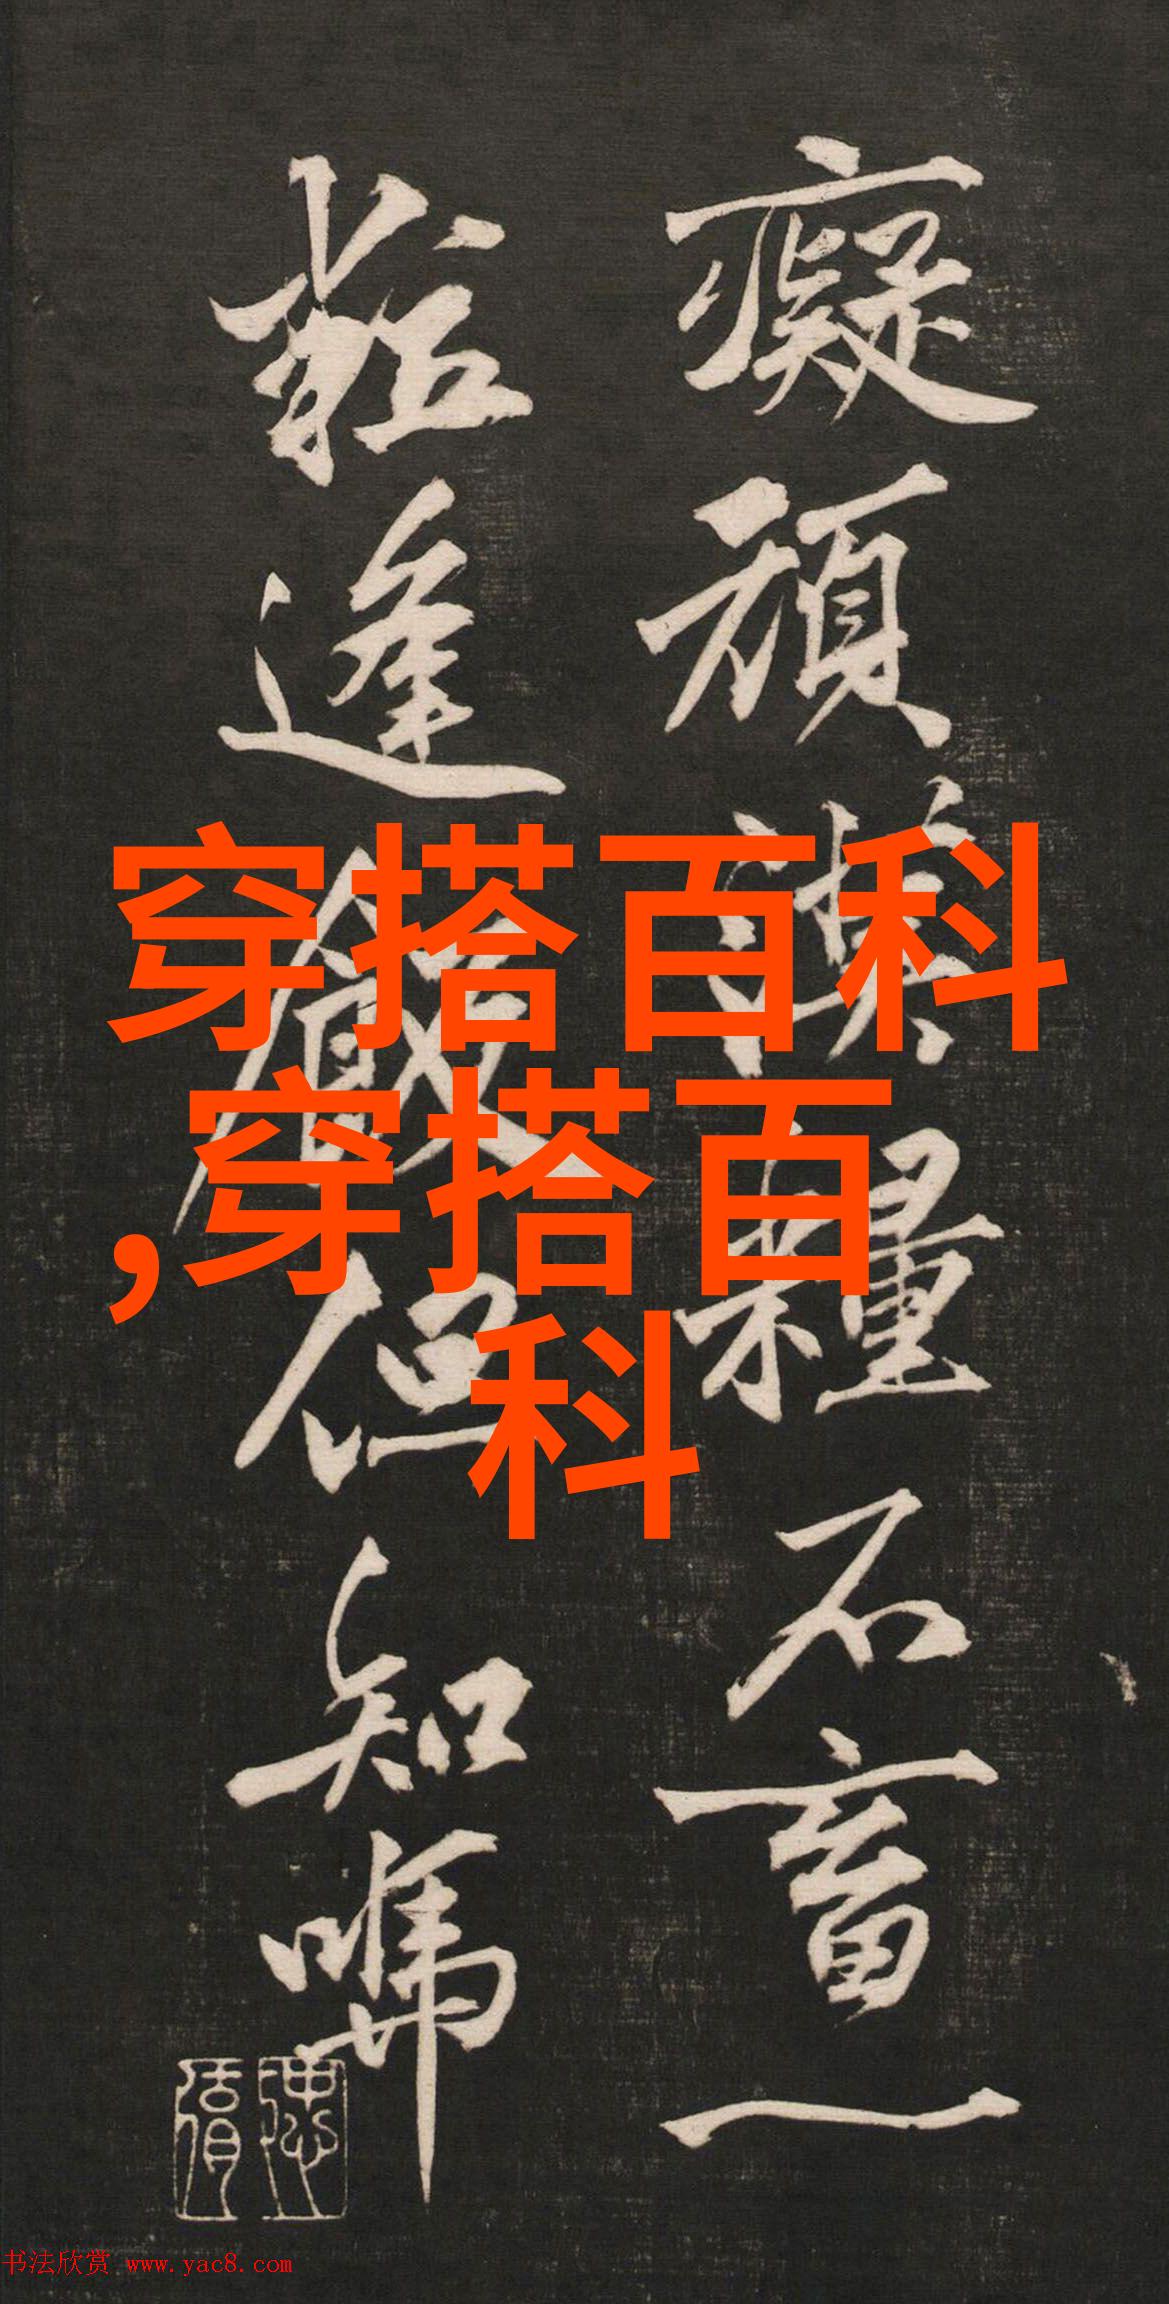 癡頑漢糧不畜一
粒逢飯但知
穿搭百科
,穿搭百
科
书法欣赏 www.yac8.com